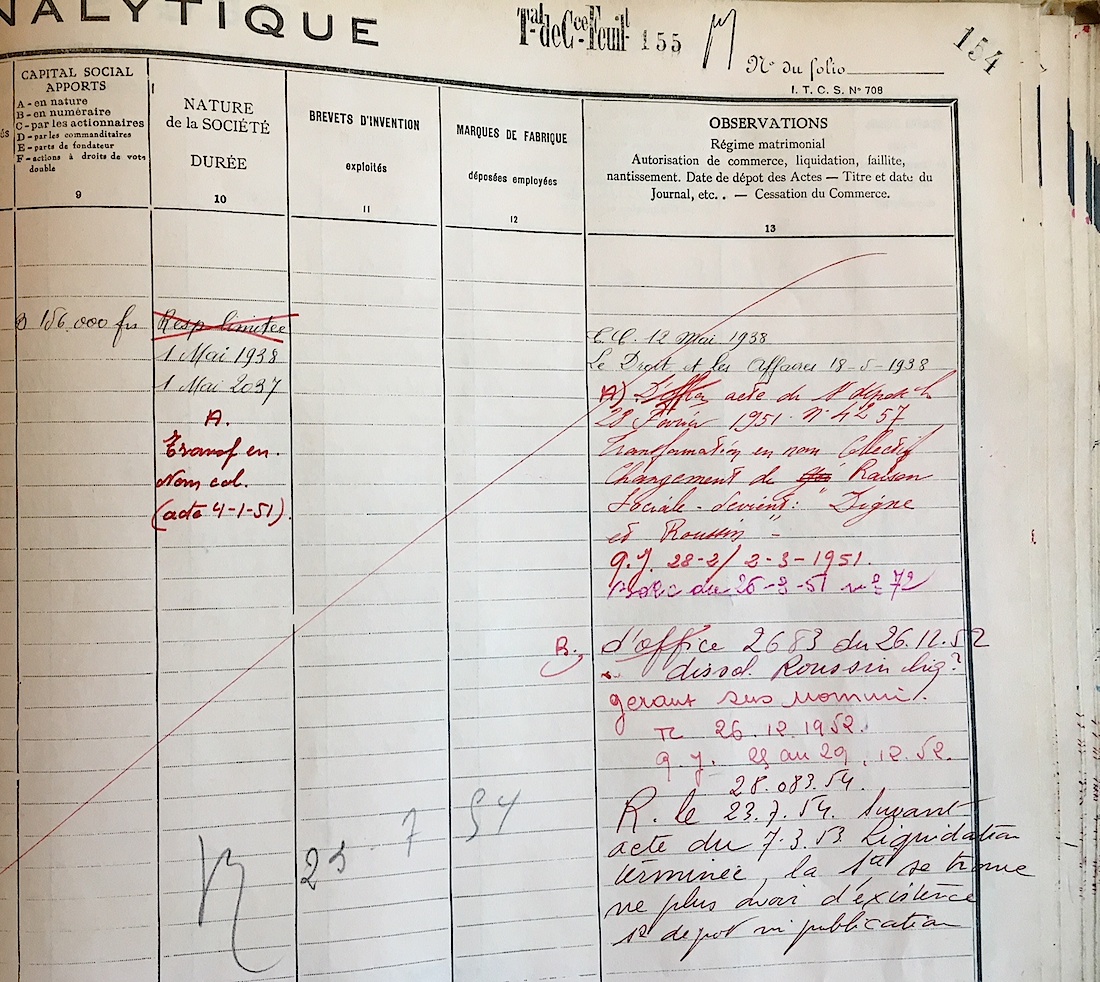 NALYTIQUE
Tal-de Cce-Feuil- 155
154
N° du folio
I. T. C. S. N° 708
CAPITAL SOCIAL
APPORTS
A - en nature
B - en numéraire
C - par les actionnaires
D - par les commanditaires
E - parts de fondateur
F - actions à droits de vote
double
9
NATURE
de la SOCIÉTÉ
DURÉE
10
BREVETS D'INVENTION
exploités
11
MARQUES DE FABRIQUE
déposées employées
12
OBSERVATIONS
Régime matrimonial
Autorisation de commerce, liquidation, faillite,
nantissement. Date de dépot des Actes — Titre et date du
Journal, etc. . — Cessation du Commerce.
13
B 156.000 frs
Resp limitée
1 Mai 1938
1 Mai 2037
A.
Transf en.
Nom col.
(acte 4-1-51)
12 Mai 1938
Le Droit et les Affaires 18-5-1938
A) acte du
28 Février 1951. N° 4257
Transformation en nom Collectif
Changement de Raison
Sociale - devient: " Digne
et Roussin "
g.J. 28-2/ 2-3-1951.
du 26-3-51 n° 72
B. d'office 2683 du 26.12.52
dissol. Roussin liq.
gerant sus nommé.
26.12.1952.
g. J. au 29.12.52.
28.083.54.
R. le 23.7.54. Suivant
acte du 7.3.53 Liquidation
terminée, la Sté se trouve
ne plus avoir d'existence
depot ni publication
R 23 . 7 54